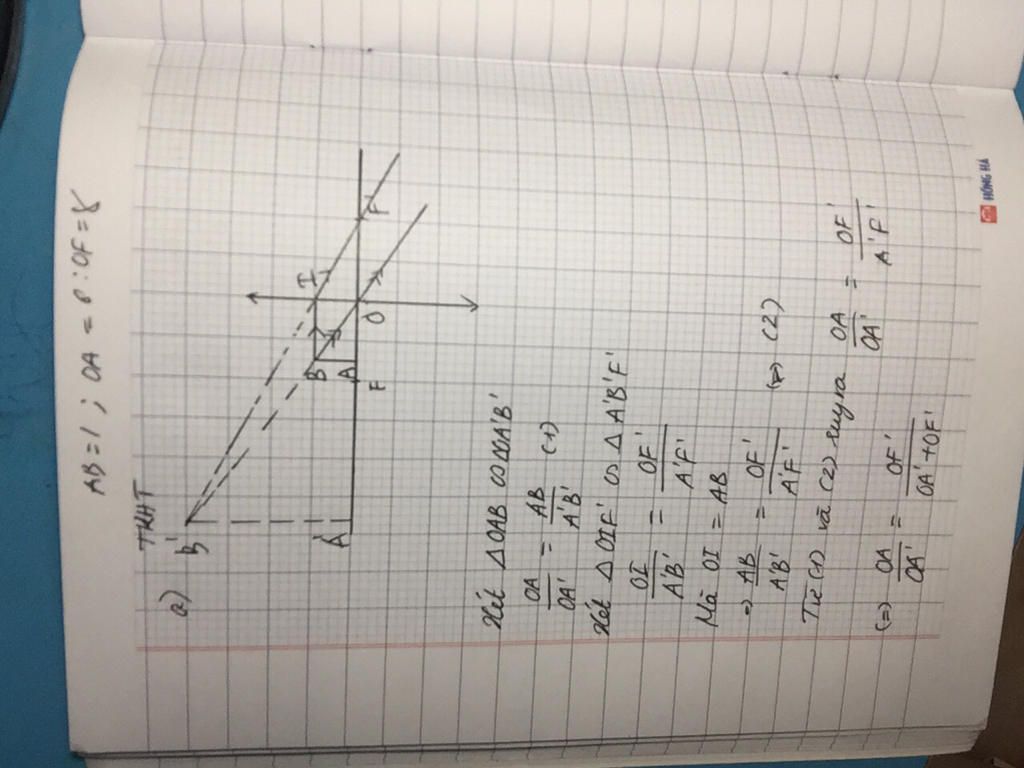 AB = 1 ; OA = 8 ; OF = 8
a) TKHT
B'
I
B
A'
A
F
O
F'
Xét △OAB ∽ △OA'B'
OA/OA' = AB/A'B' (1)
Xét △OIF' ∽ △A'B'F'
OI/A'B' = OF'/A'F'
Mà OI = AB
=> AB/A'B' = OF'/A'F' (2)
Từ (1) và (2) suy ra OA/OA' = OF'/A'F'
(=) OA/OA' = OF'/OA'+OF'
HỒNG HÀ